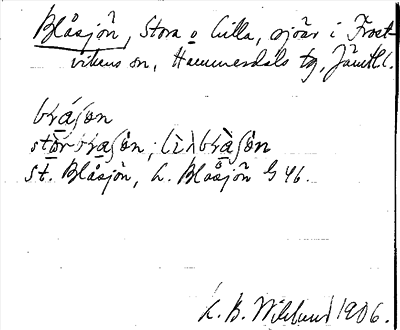 Blåsjön, Stora o Lilla, sjöar i Frost-
vikens sn, Hammerdals tg, Jämtl.
bráʃøn
stōrbraʃøn; lìλbràʃøn
St. Blåsjön, L. Blåsjön G 46.
K. B. Wiklund 1906.